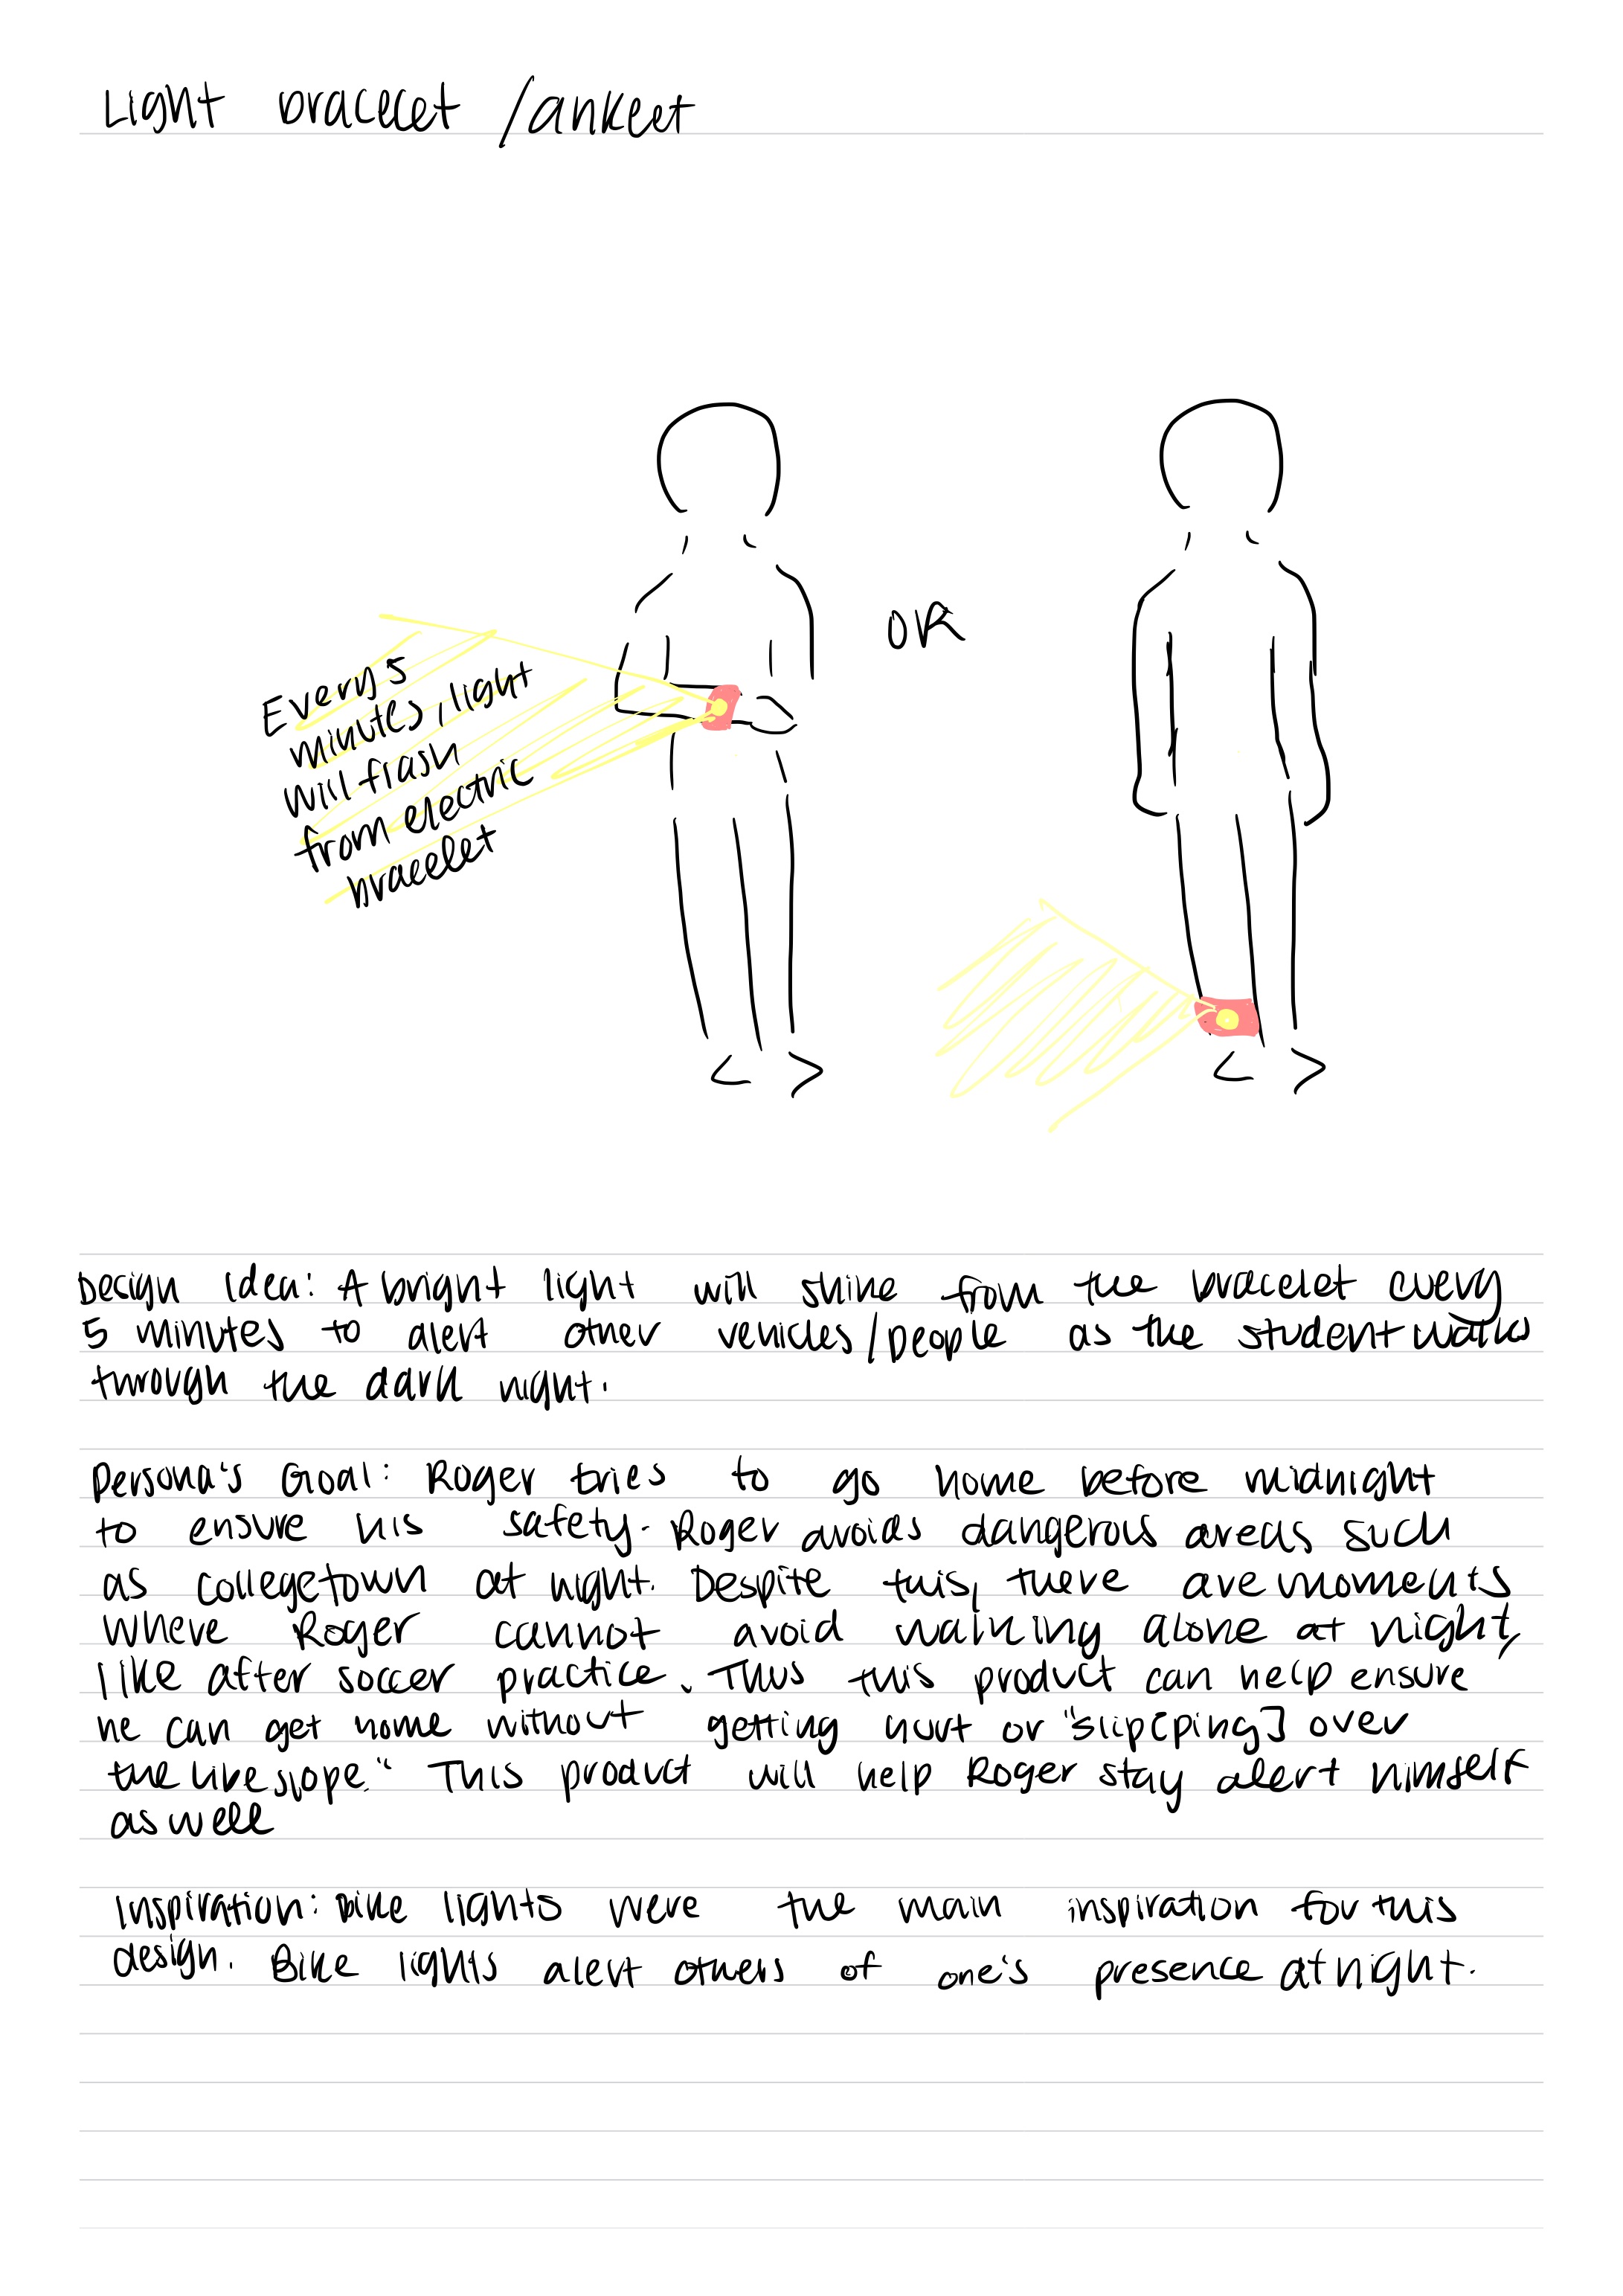 Light bracelet /anklet
Every 5
minutes, light
will flash
from electric
bracelet
OR
Design Idea: A bright light will shine from the bracelet every
5 minutes to alert other vehicles/people as the student walks
through the dark night.
Persona's Goal: Roger tries to go home before midnight
to ensure his safety. Roger avoids dangerous areas such
as collegetown at night. Despite this, there are moments
where Roger cannot avoid walking alone at night,
like after soccer practice. Thus this product can help ensure
he can get home without getting hurt or "slip[ping] over
the libe slope." This product will help Roger stay alert himself
as well
Inspiration: Bike lights were the main inspiration for this
design. Bike lights alert others of one's presence at night.